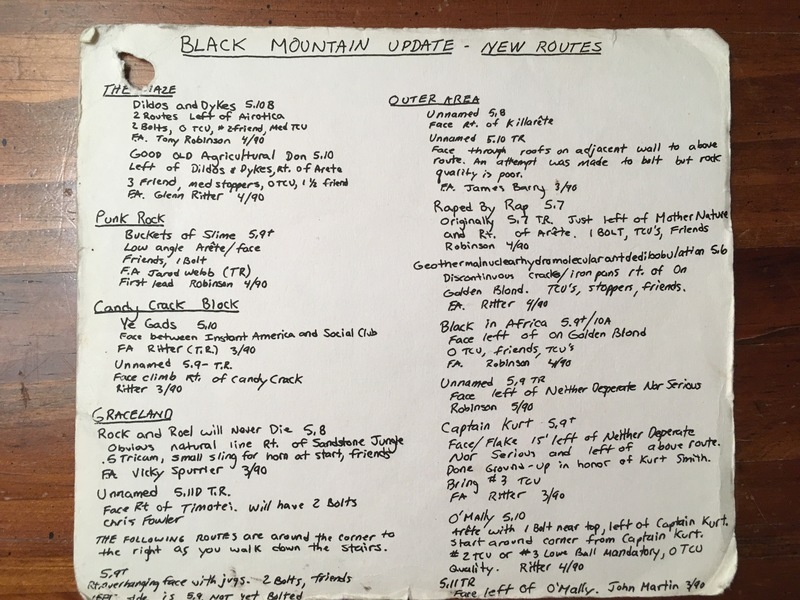 BLACK MOUNTAIN UPDATE - NEW ROUTES
THE MAZE
Dildos and Dykes 5.10B
2 Routes Left of Airotica
2 Bolts, 0 TCU, #2 friend, Med TCU
FA. Tony Robinson 4/90
GOOD OLD Agricultural Don 5.10
Left of Dildos & Dykes, Rt. of Arete
3 Friend, med stoppers, 0 TCU, 1 1/2 friend
FA. Glenn Ritter 4/90
Punk Rock
Buckets of Slime 5.9+
Low angle Arête/face
Friends, 1 Bolt
F.A Jarod Webb (TR)
First lead Robinson 4/90
Candy Crack Block
Ye Gads 5.10
Face between Instant America and Social Club
FA Ritter (T.R.) 3/90
Unnamed 5.9- T.R.
Face climb Rt. of Candy Crack
Ritter 3/90
GRACELAND
Rock and Roel will Never Die 5.8
Obvious natural line Rt. of Sandstone Jungle
.5 Tricam, small sling for horn at start, friends
FA Vicky Spurrier 3/90
Unnamed 5.11D T.R.
Face Rt of Timotei. Will have 2 Bolts
Chris Fowler
THE FOLLOWING ROUTES are around the corner to
the right as you walk down the stairs.
5.9+
Rt. overhanging face with jugs. 2 Bolts, friends
Left side is 5.9 Not yet Bolted
OUTER AREA
Unnamed 5.8
Face Rt. of Killarête
Unnamed 5.10 TR
Face through roofs on adjacent wall to above
route. An attempt was made to bolt but rock
quality is poor.
FA. James Barry 3/90
Raped By Rap 5.7
Originally 5.7 TR. Just left of Mother Nature
and Rt. of Arête. 1 BOLT, TCU's, Friends
Robinson 4/90
Geothermalnuclearhydromolecularantdedibobulation 5.6
Discontinous cracks/iron pans rt. of On
Golden Blond. TCU's, stoppers, friends.
FA. Ritter 4/90
Black in Africa 5.9+/10A
Face left of on Golden Blond
0 TCU, friends, TCU's
FA. Robinson 4/90
Unnamed 5.9 TR
Face left of Neither Desperate Nor Serious
Robinson 5/90
Captain Kurt 5.9+
Face/Flake 15' left of Neither Deperate
Nor Serious and left of above route.
Done Ground-up in honor of Kurt Smith.
Bring #3 TCU
FA Ritter 3/90
O'Mally 5.10
Arête with 1 Bolt near top, left of Captain Kurt.
Start around corner from Captain Kurt.
#2 TCU or #3 Lowe Ball Mandatory, 0 TCU
Quality. Ritter 4/90
5.11 TR
Face left of O'Mally. John Martin 3/90